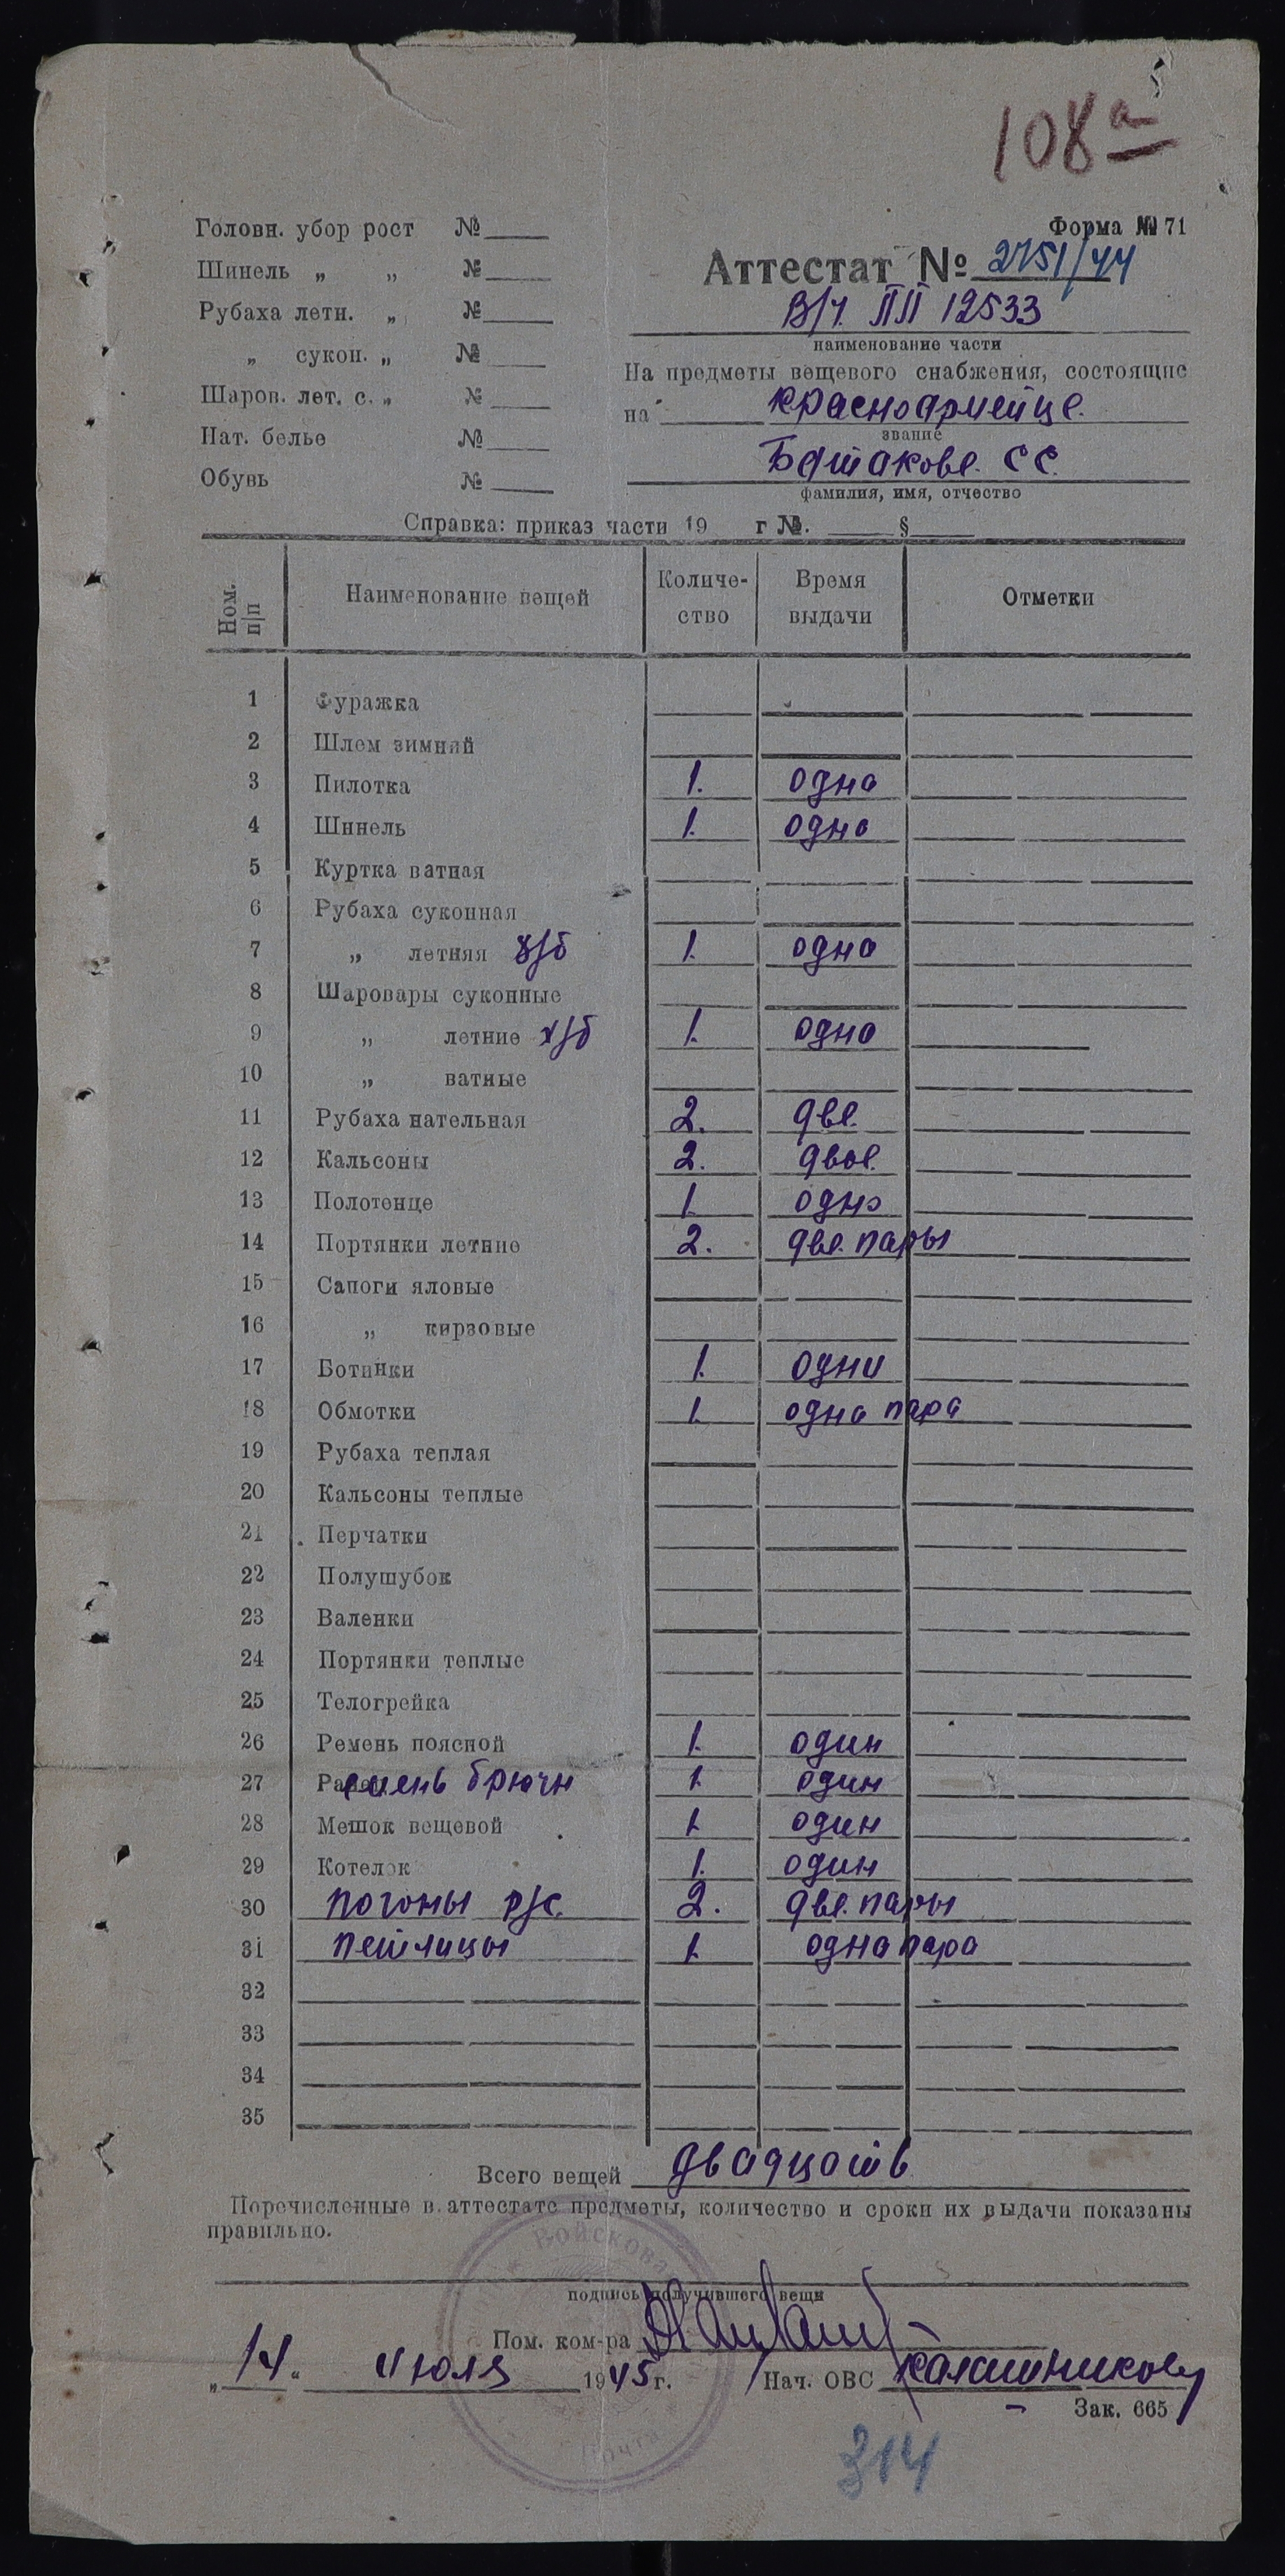 108а
Форма № 71
Головн. убор рост №
Шинель „ „ №
Рубаха летн. „ №
„ сукон. „ №
Шаров. лет. с. „ №
Нат. белье №
Обувь №
Аттестат № 2751/44
В/ч. ПП 12533
наименование части
На предметы вещевого снабжения, состоящие
на красноармейце.
звание
Баташове. С С.
фамилия, имя, отчество
Справка: приказ части 19 г №. §
Ном. п/п Наименование вещей Количество Время выдачи Отметки
1 Фуражка
2 Шлем зимний
3 Пилотка 1. одна
4 Шинель 1. одна
5 Куртка ватная
6 Рубаха суконная
7 „ летняя х/б 1. одна
8 Шаровары суконные
9 „ летние х/б 1. одна
10 „ ватные
11 Рубаха нательная 2. две.
12 Кальсоны 2. двое.
13 Полотенце 1. одно
14 Портянки летние 2. две. пары
15 Сапоги яловые
16 „ кирзовые
17 Ботинки 1. одни
18 Обмотки 1. одна пара
19 Рубаха теплая
20 Кальсоны теплые
21 Перчатки
22 Полушубок
23 Валенки
24 Портянки теплые
25 Телогрейка
26 Ремень поясной 1. один
27 Ремень брючн 1. один
28 Мешок вещевой 1. один
29 Котелок 1. один
30 погоны р/с. 2. две. пары
31 петлицы 1. одна пара
32
33
34
35
Всего вещей двадцать
Перечисленные в аттестате предметы, количество и сроки их выдачи показаны
правильно.
Войскова
подпись получившего вещи
Пом. ком-ра
„14„ Июля 1945 г. Нач. ОВС Калашников
Зак. 665
Почта
314